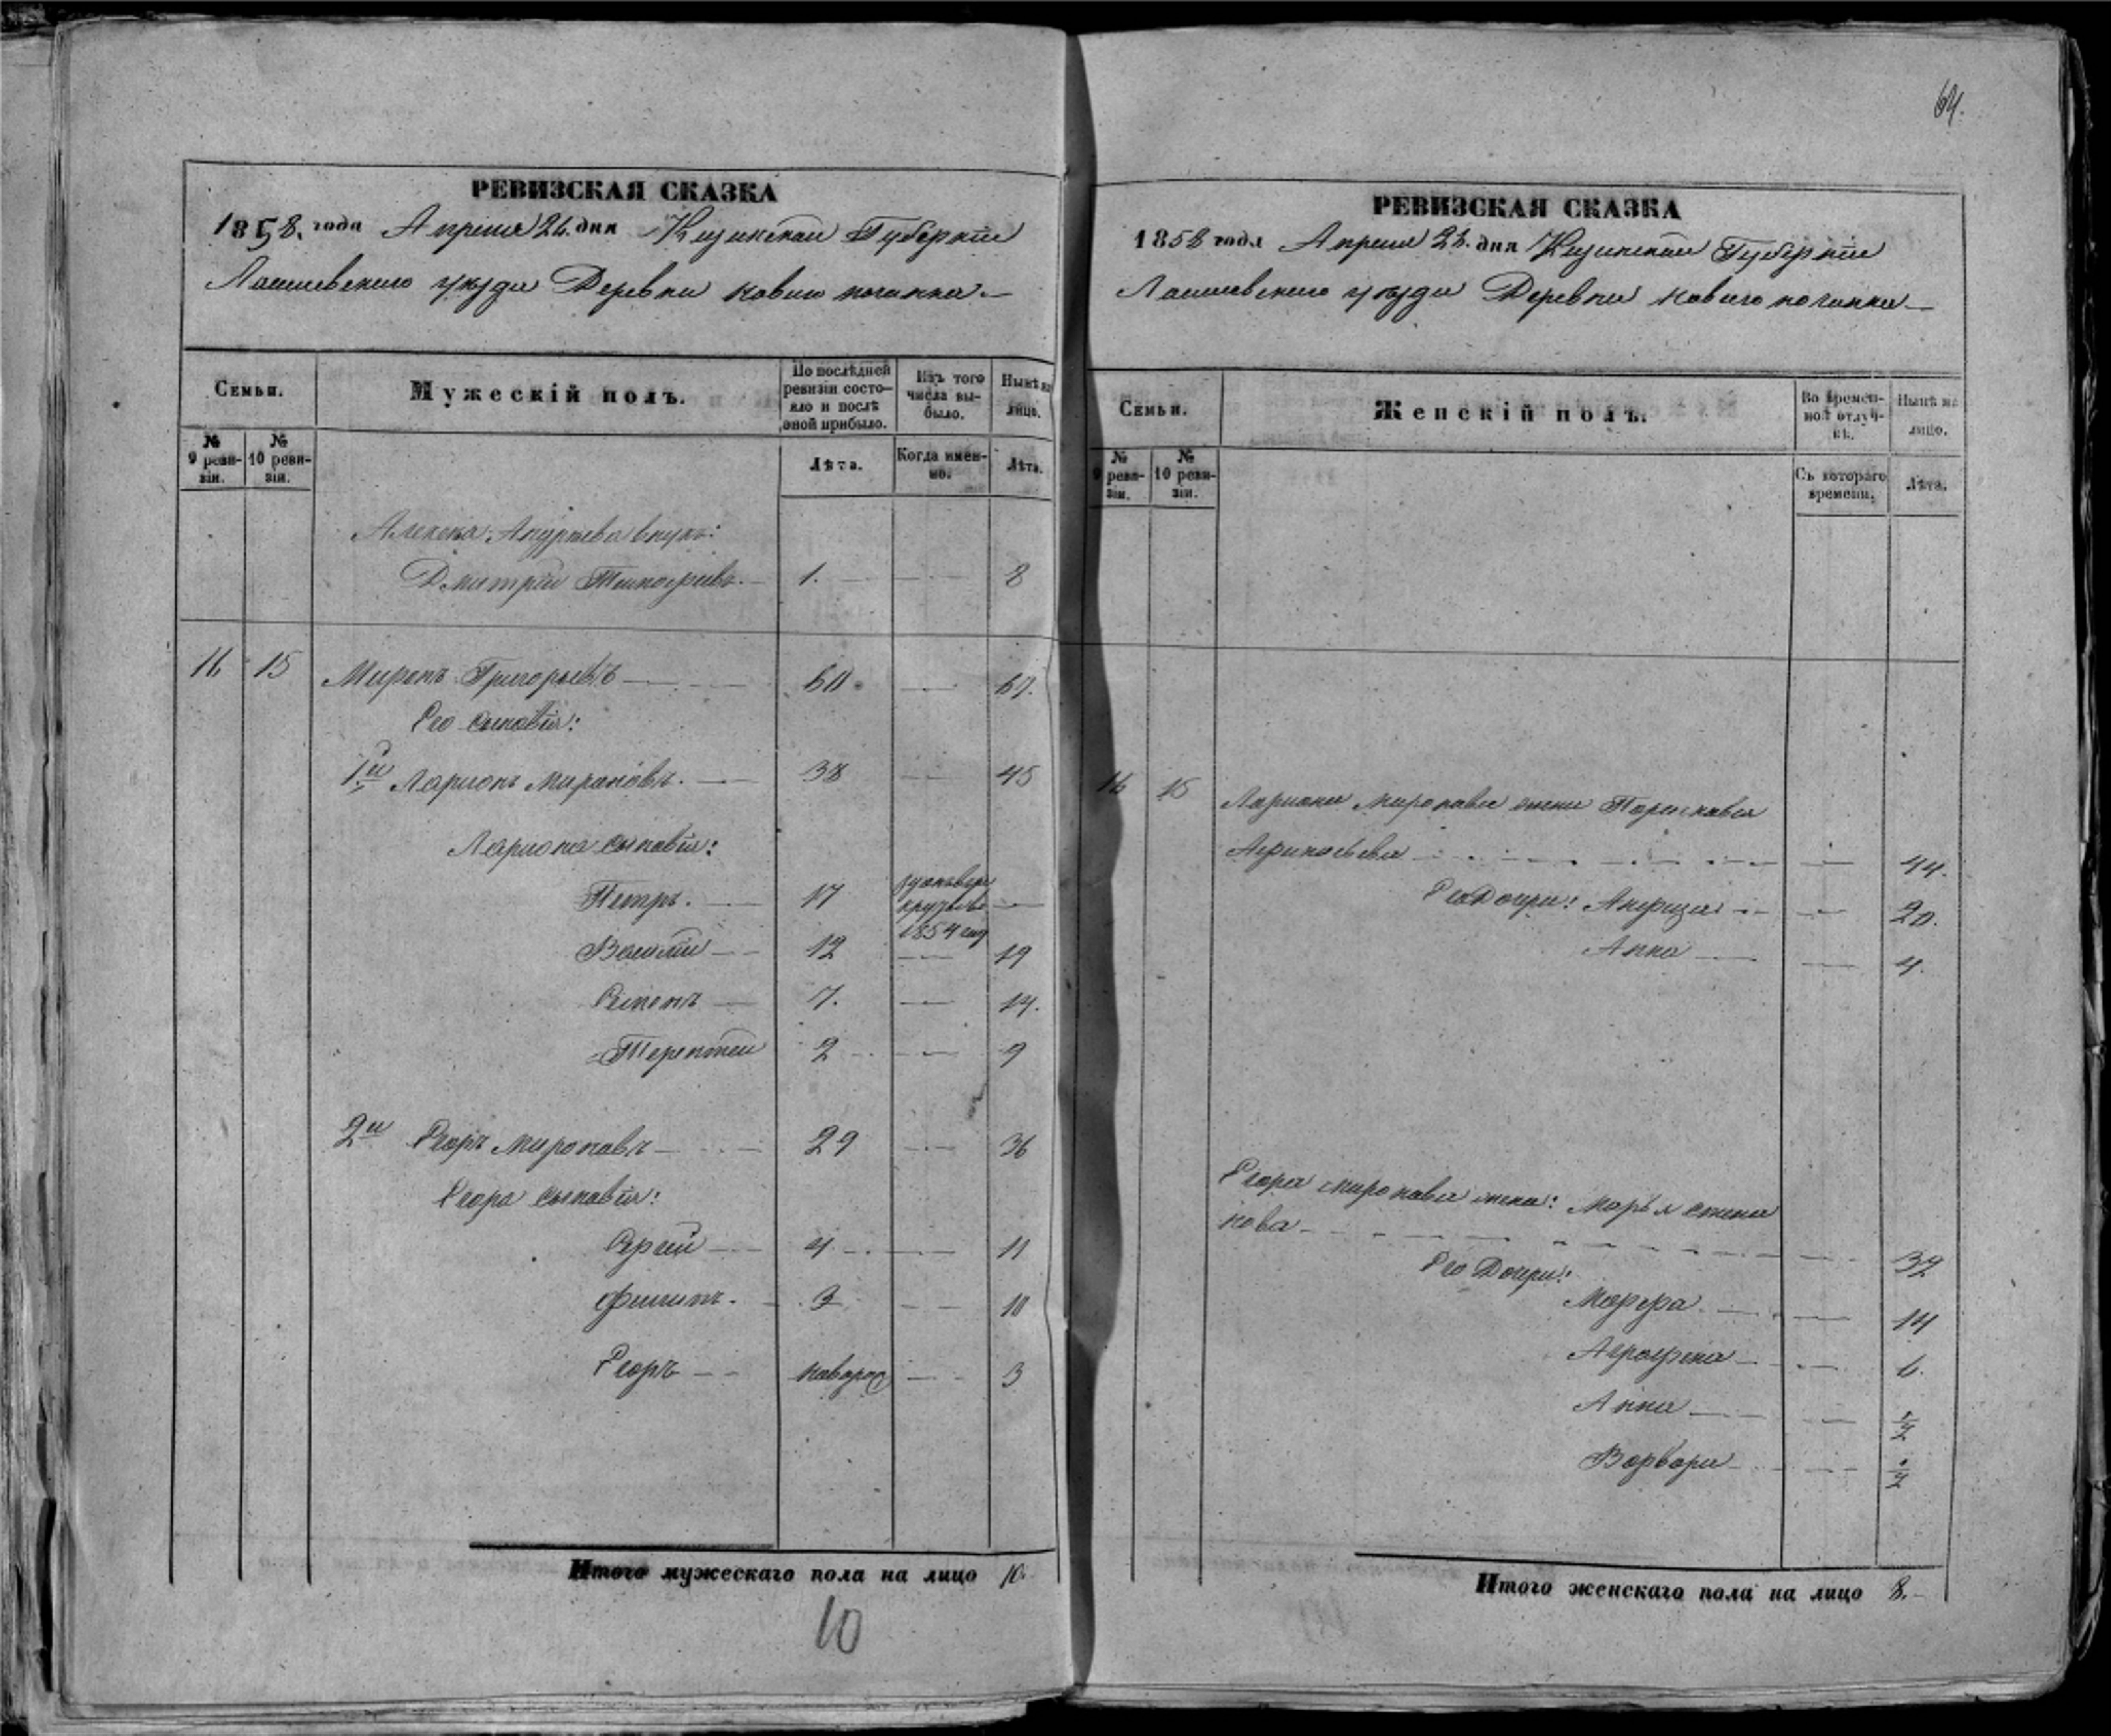 64.
РЕВИЗСКАЯ СКАЗКА
1858. года Апреля 26. дня Казанской Губернiи
Лаишевского уезда Деревни новаго починка
Семьи.
Мужескiй полъ.
По послѣдней ревизiи состо-
яло и послѣ
оной прибыло.
Изъ того
числа вы-
было.
Нынѣ на
лицо.
№
9 реви-
зiи.
№
10 реви-
зiи.
Лѣта.
Когда имен-
но.
Лѣта.
внукъ:
Дмитрiй Тимофѣевъ. 1. 8
16 15 Миронъ Григорьевъ 60. 67.
Его сыновья:
1й Ларионъ Мироновъ. 38 45
Лариона сыновья:
Петръ. 17
1854 году
Василiй 12 19
Семенъ 7. 14.
Терентей 2 9
2й Егоръ Мироновъ 29 36
Егора сыновья:
Сергей 4. 11
Филипъ. 3 10
Егоръ новорож 3
Итого мужескаго пола на лицо 10.
10
РЕВИЗСКАЯ СКАЗКА
1858 года Апреля 26. дня Казанской Губернiи
Лаишевского уезда Деревни новаго починка
Семьи.
Женскiй полъ.
Во времен-
ной отлуч-
кѣ.
Нынѣ на
лицо.
№
9 реви-
зiи.
№
10 реви-
зiи.
Съ котораго
времени.
Лѣта.
16 15 Лариона Миронова жена Парасковья
Афонасьева 44.
Его Дочери: Анфиза 20.
Анна 4.
Егора миронова жена: Марья степа
нова 32
Его Дочери:
Марфа 14
Аграфена 6.
Анна
Варвара
Итого женскаго пола на лицо 8.